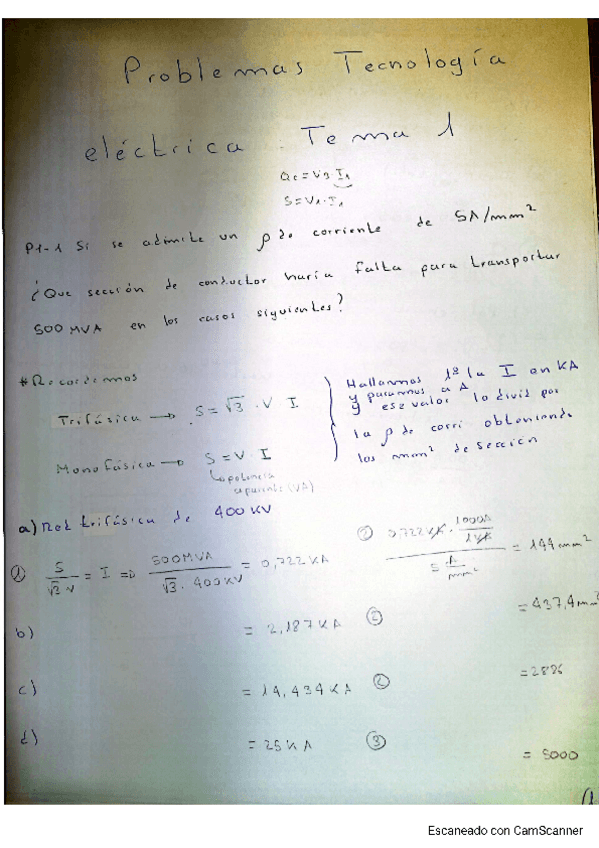 Problemas Tecnología
eléctrica. Tema 1
Qc=√3·I₁
S=V₁·I₁
P1-1 Si se admite un ρ de corriente de 5A/mm²
¿Que sección de conductor haría falta para transportar
500 MVA en los casos siguientes?
#Recordemos
Trifásica → S=√3·V I
Monofásica → S=V·I
La potencia
aparente (VA)
Hallamos 1º la I en KA
y pasamos a A
y ese valor lo divid por
la ρ de corri obteniendo
los mm² de sección
a) Red trifásica de 400 KV
① S/√3·V = I ⇒ 500MVA/√3·400KV = 0,722 KA
② 0,722 KA · 1000A/1KA / 5 A/mm² = 144 mm²
b) = 2,187 KA ② = 437,4 mm²
c) = 14,434 KA ② = 2886
d) = 25 KA ③ = 5000
Escaneado con CamScanner